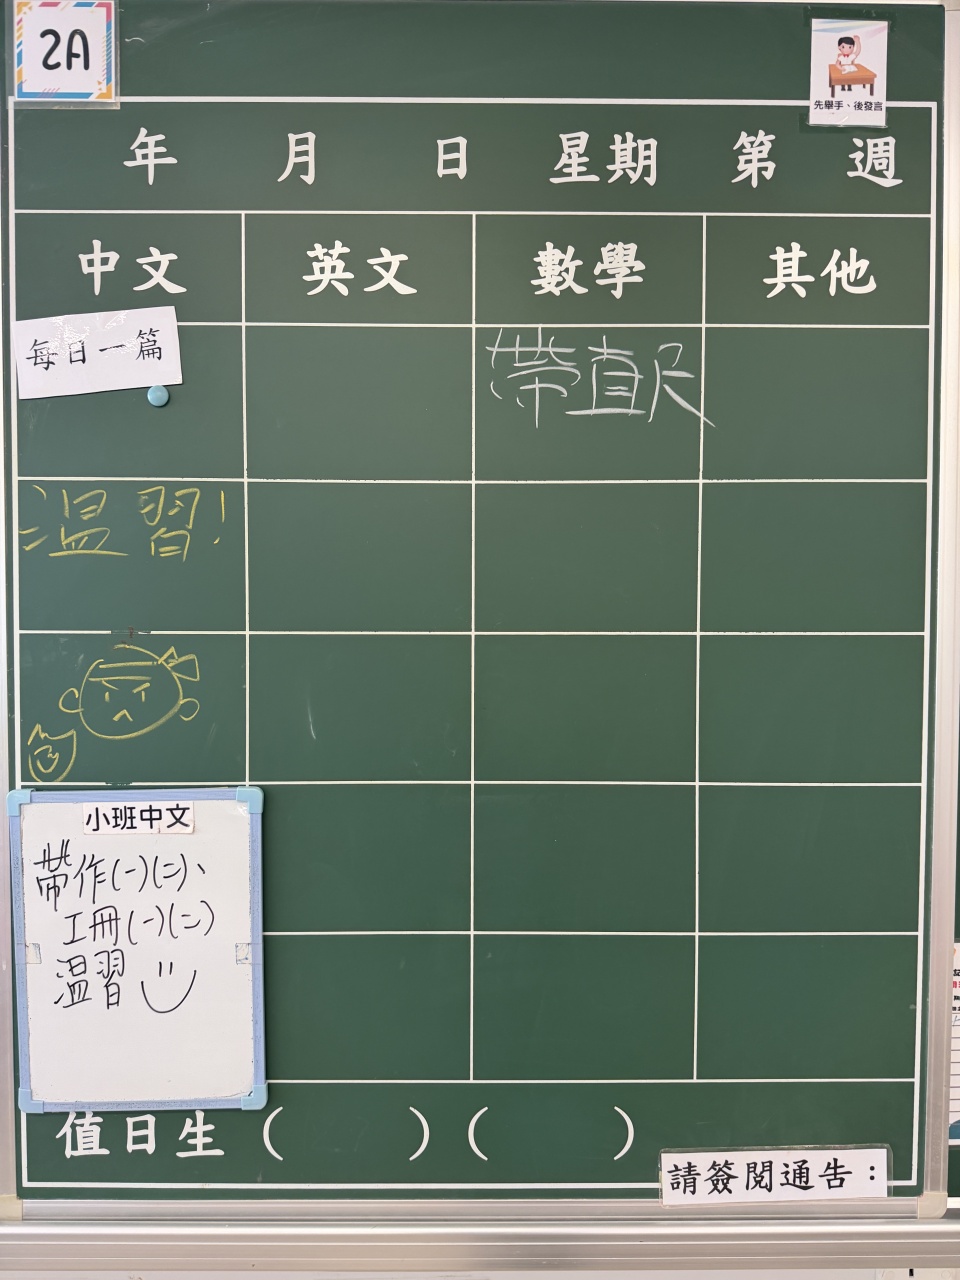 2A
先舉手、後發言
年 月 日 星期 第 週
中文 英文 數學 其他
每日一篇
帶直尺
溫習!
小班中文
帶作(一)(二)、
工冊(一)(二)
溫習
值日生 ( ) ( )
請簽閱通告：